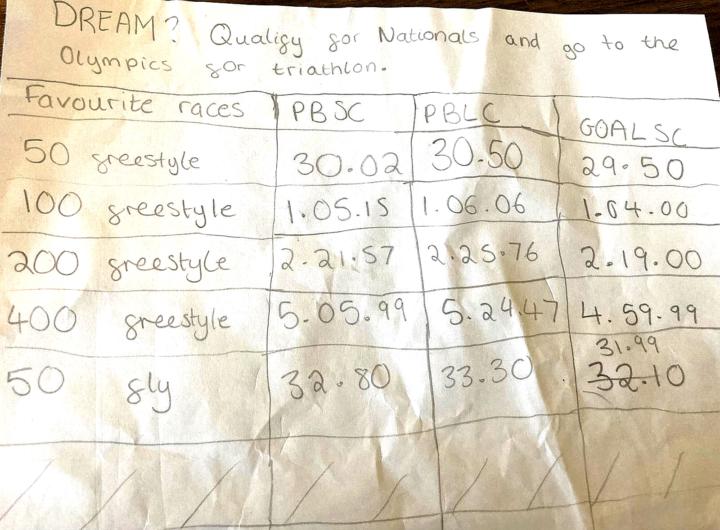 DREAM? Qualify for Nationals and go to the
Olympics for triathlon.
Favourite races PBSC PBLC GOAL SC
50 freestyle 30.02 30.50 29.50
100 freestyle 1.05.15 1.06.06 1.04.00
200 freestyle 2.21.57 2.25.76 2.19.00
400 freestyle 5.05.99 5.24.47 4.59.99
31.99
50 fly 32.80 33.30 32.10